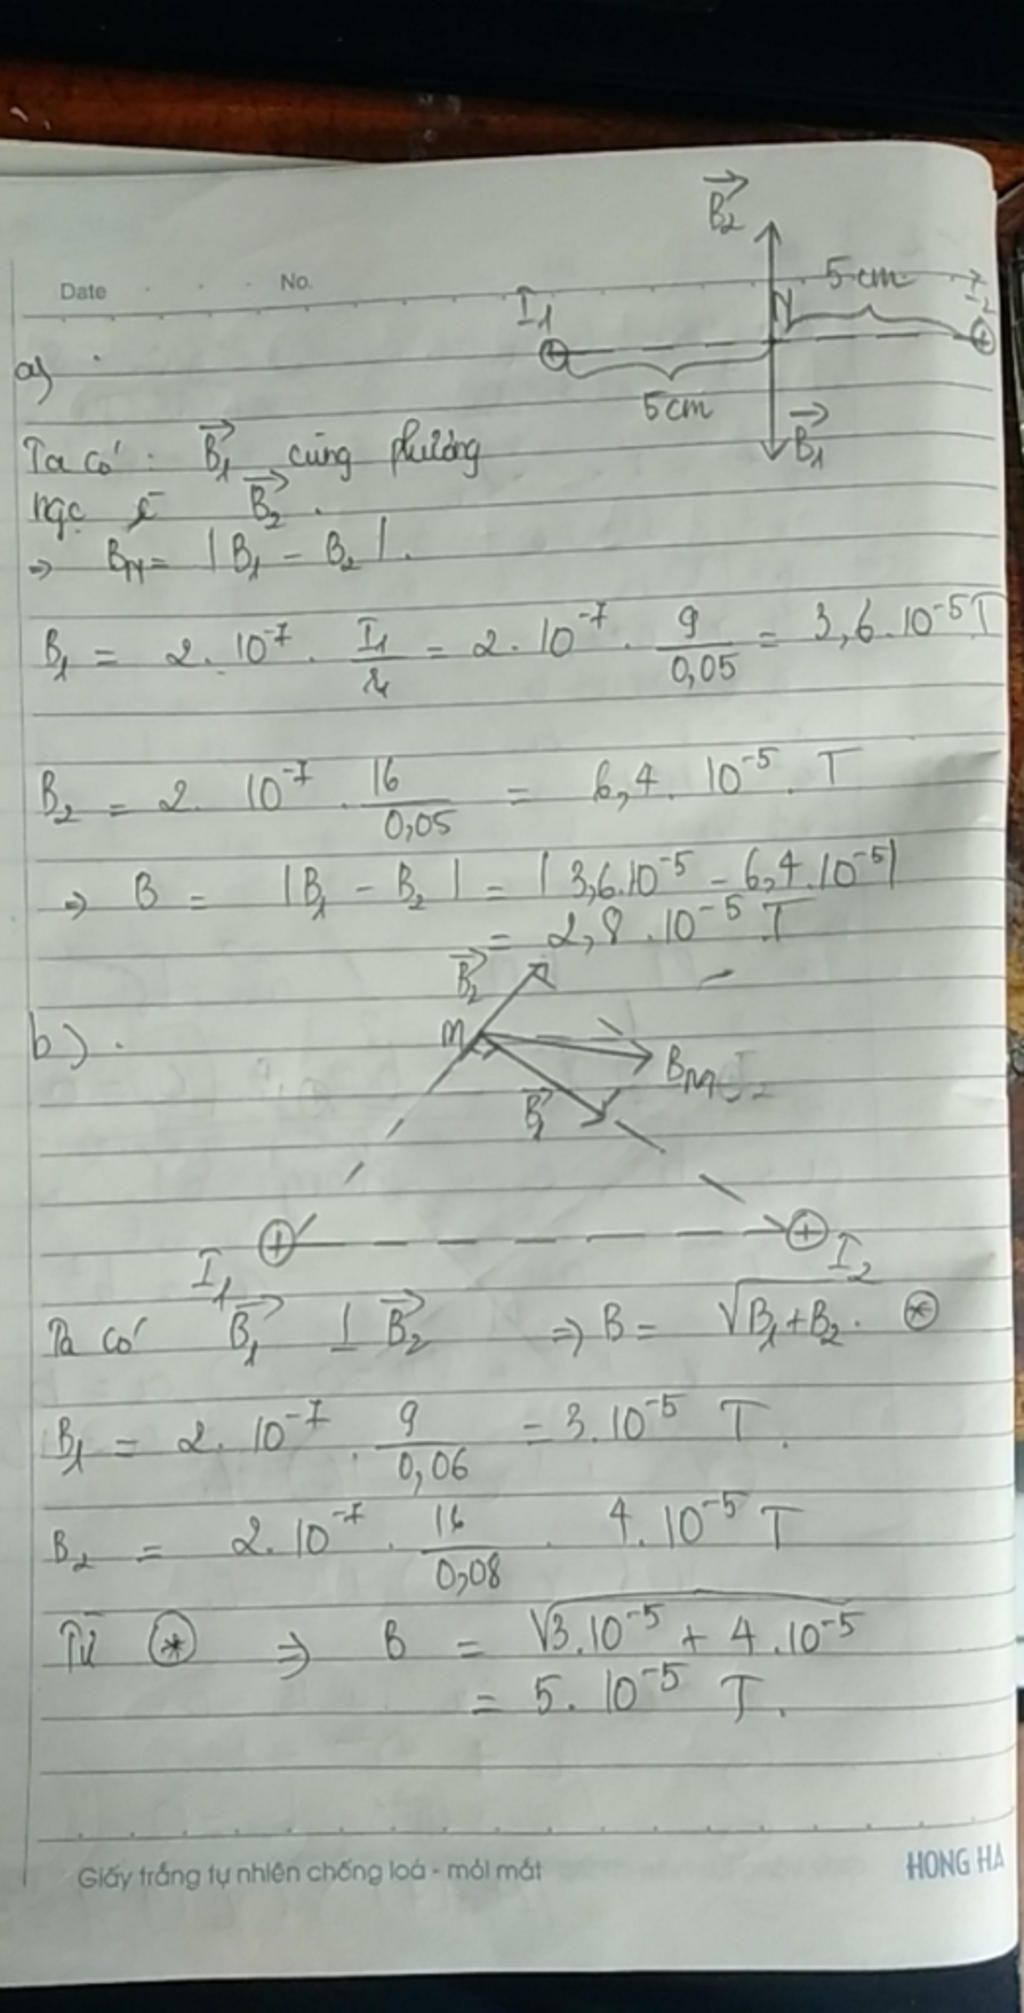 B₂
Date No.
I₁ N 5 cm I₂
a)
5 cm
B₁
Ta có: B₁ cùng phương
ngc B₂.
=> B_N = |B₁ - B₂|.
B₁ = 2. 10⁻⁷. I₁/r₁ = 2. 10⁻⁷. 9/0,05 = 3,6.10⁻⁵T
B₂ = 2. 10⁻⁷. 16/0,05 = 6,4. 10⁻⁵. T
=> B = |B₁ - B₂| = |3,6.10⁻⁵ - 6,4.10⁻⁵|
= 2,8.10⁻⁵ T
B₂
b). M B_M
B₁
I₁ I₂
Ta có B₁ ⊥ B₂ => B = √B₁+B₂. (*)
B₁ = 2. 10⁻⁷. 9/0,06 = 3.10⁻⁵ T.
B₂ = 2.10⁻⁷. 16/0,08 . 4.10⁻⁵ T
Từ (*) => B = √3.10⁻⁵ + 4.10⁻⁵
= 5. 10⁻⁵ T.
Giấy trắng tự nhiên chống loá - mỏi mắt
HONG HA